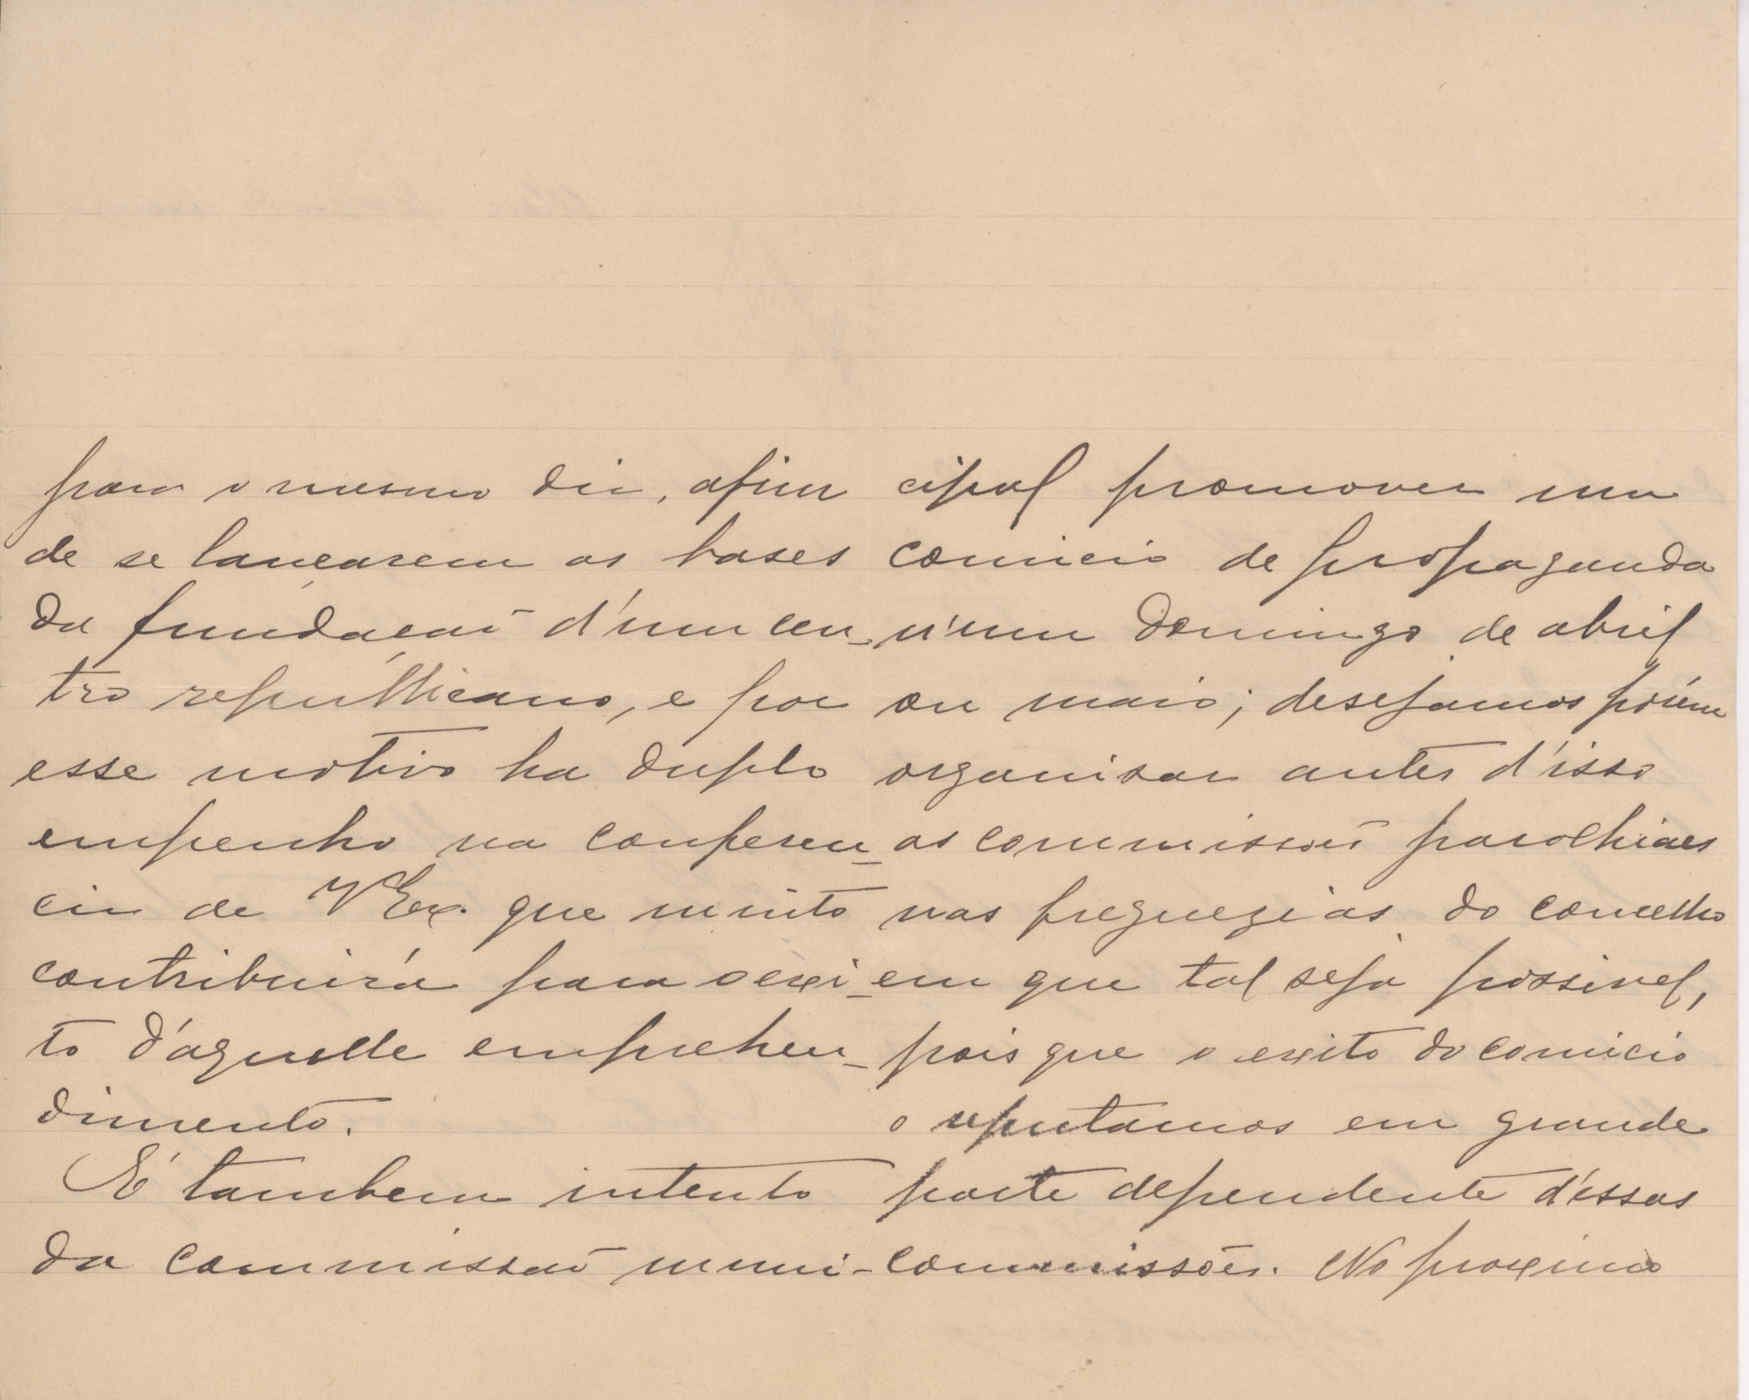 para o mesmo dia, afim
de se lançarem as bases
da fundação d'um cen-
tro republicano, e por
esse motivo ha duplo
empenho na conferen-
cia de V Ex. que muito
contribuirá para o exi-
to d'aquelle emprehen-
dimento.
É tambem intento
da commissão muni-
cipal promover um
comicio de propaganda
n'um Domingo de abril
ou maio; desejamos porém
organisar antes d'isso
as commissões parochiaes
nas freguezias do concelho
em que tal seja possivel,
pois que o exito do comicio
o reputamos em grande
parte dependente d'essas
commissões. No proximo